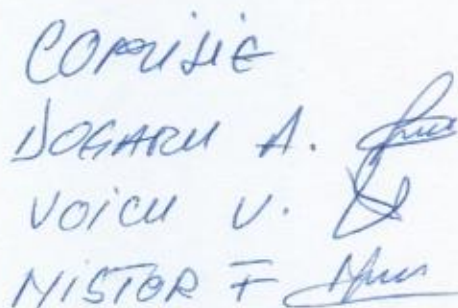 COMISIE
DOGARU A.
VOICU V.
NISTOR F